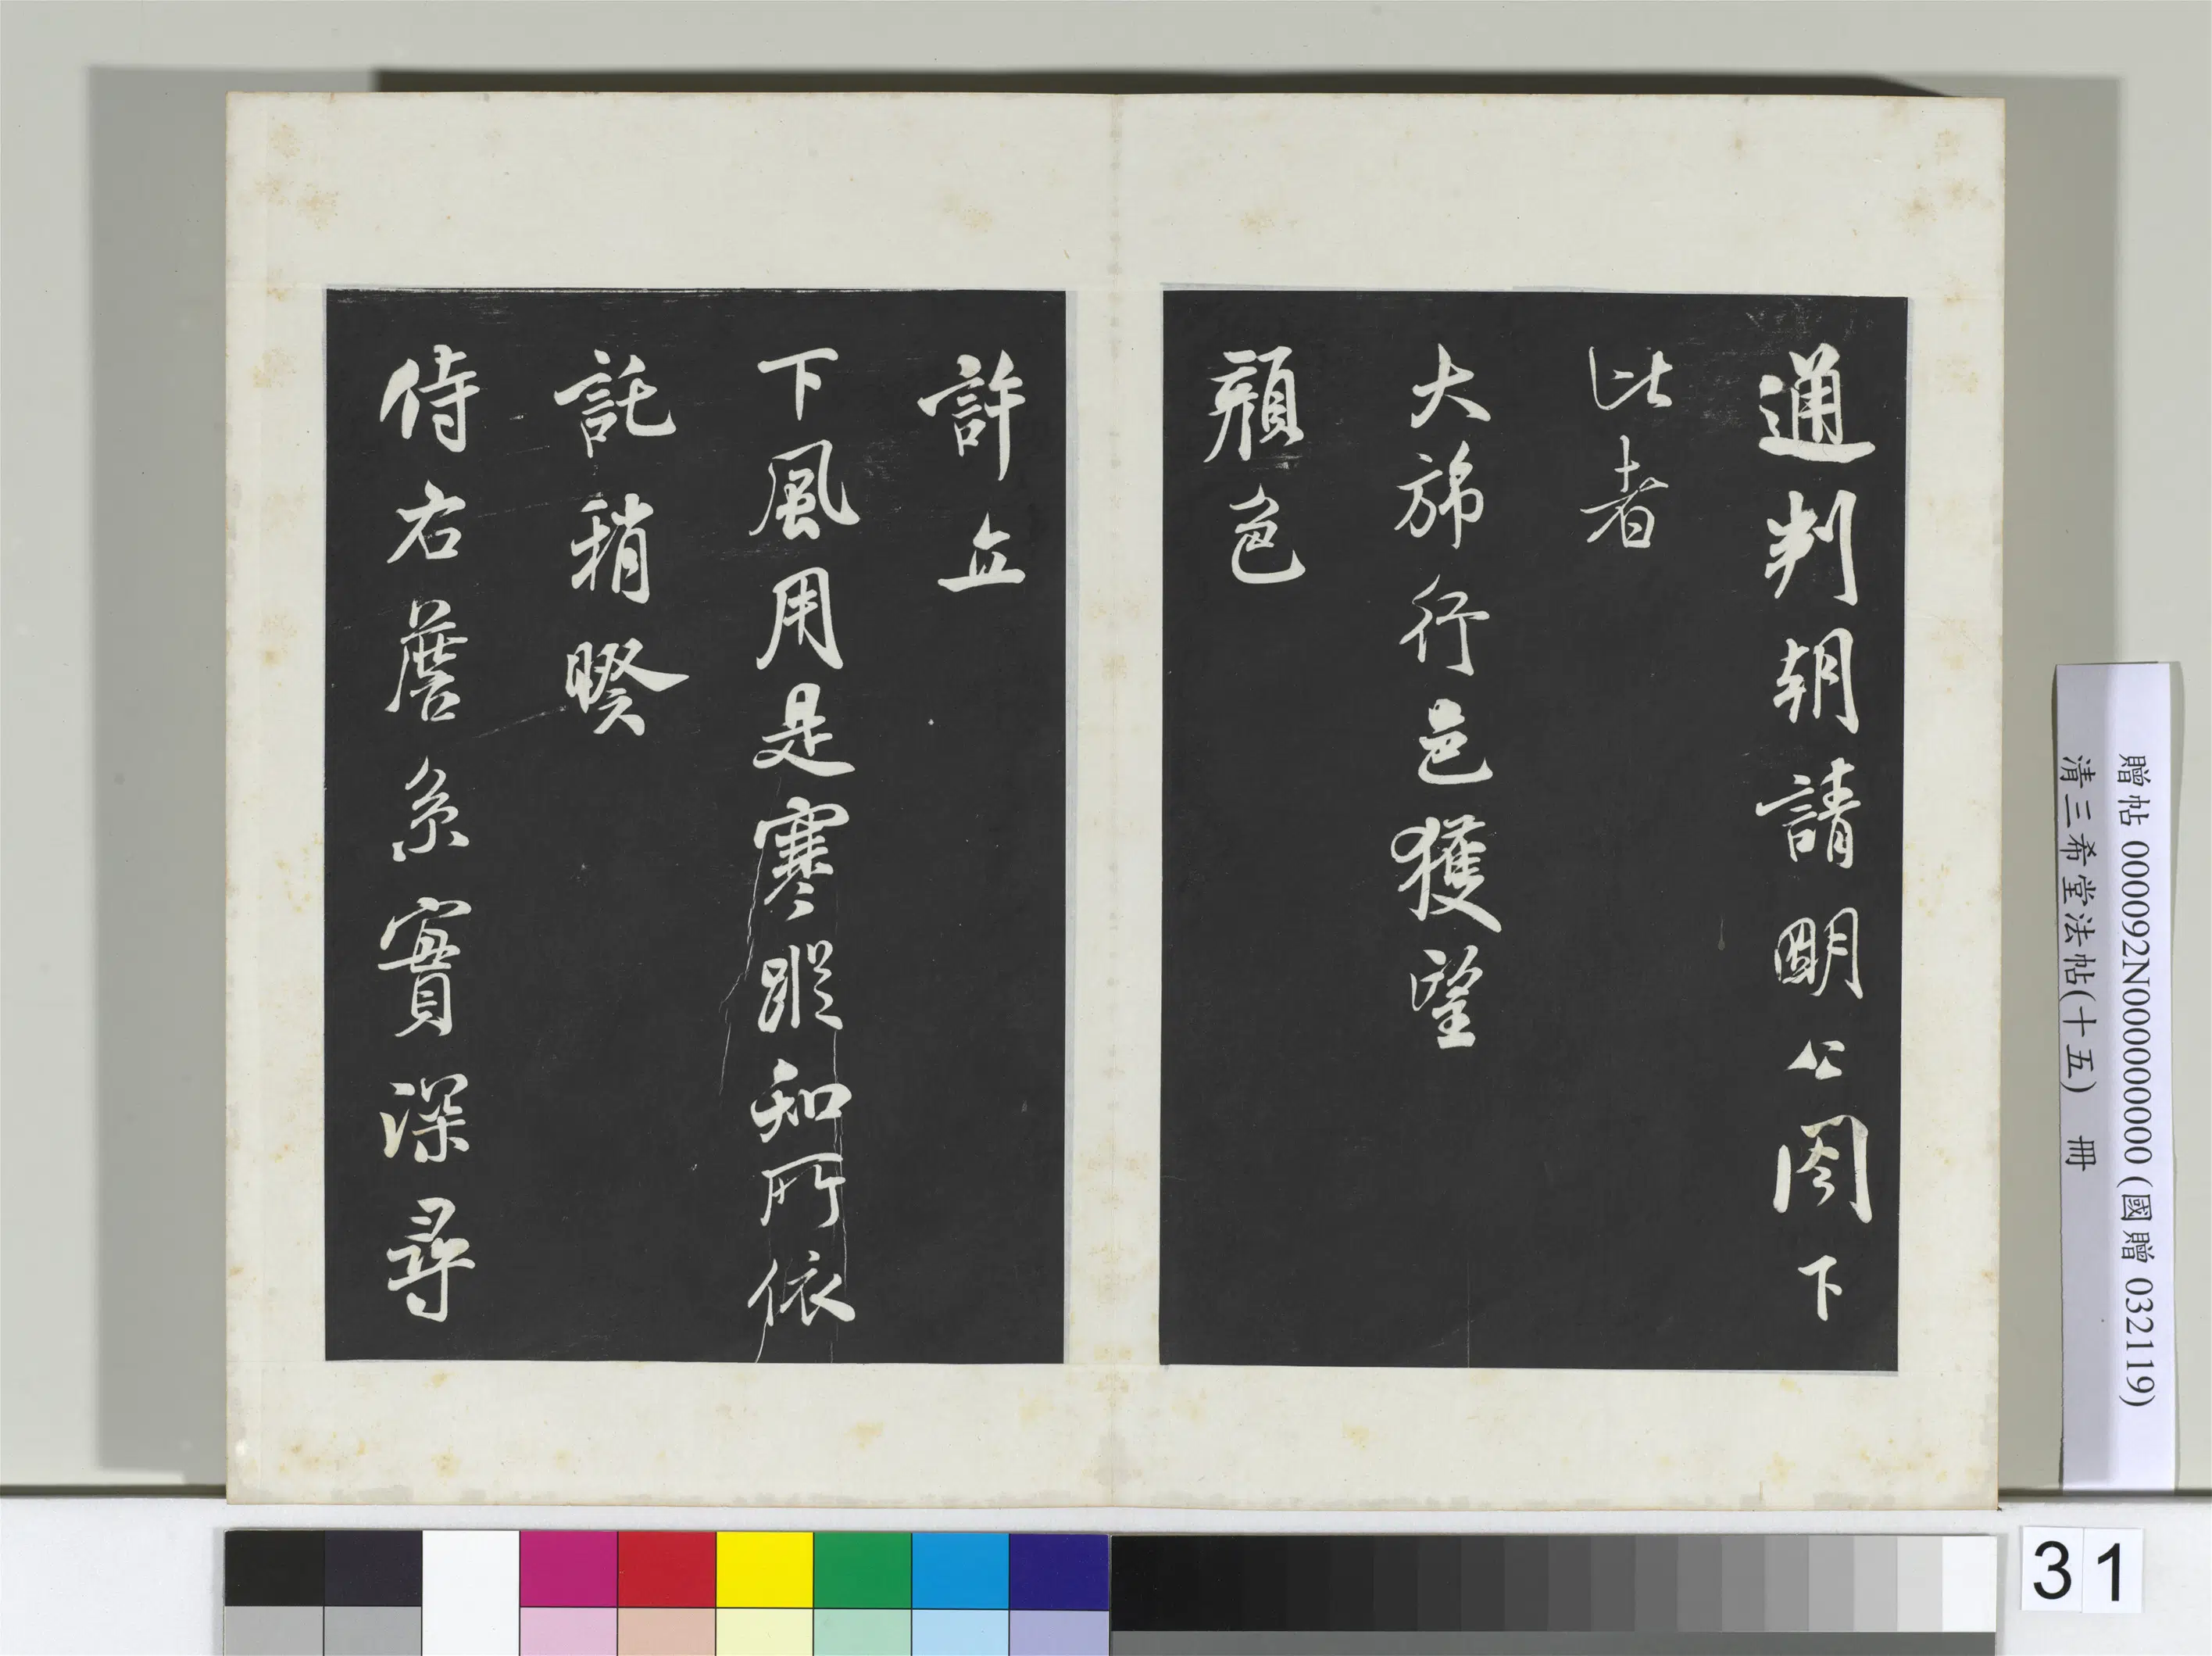 通判朝請明公閤下
比者
大旆行邑獲望
顏色
許立
下風用是寒蹤知所依
託稍睽
侍右詹系實深尋
贈帖 000092N000000000 (國贈 032119)
清三希堂法帖(十五) 冊
31